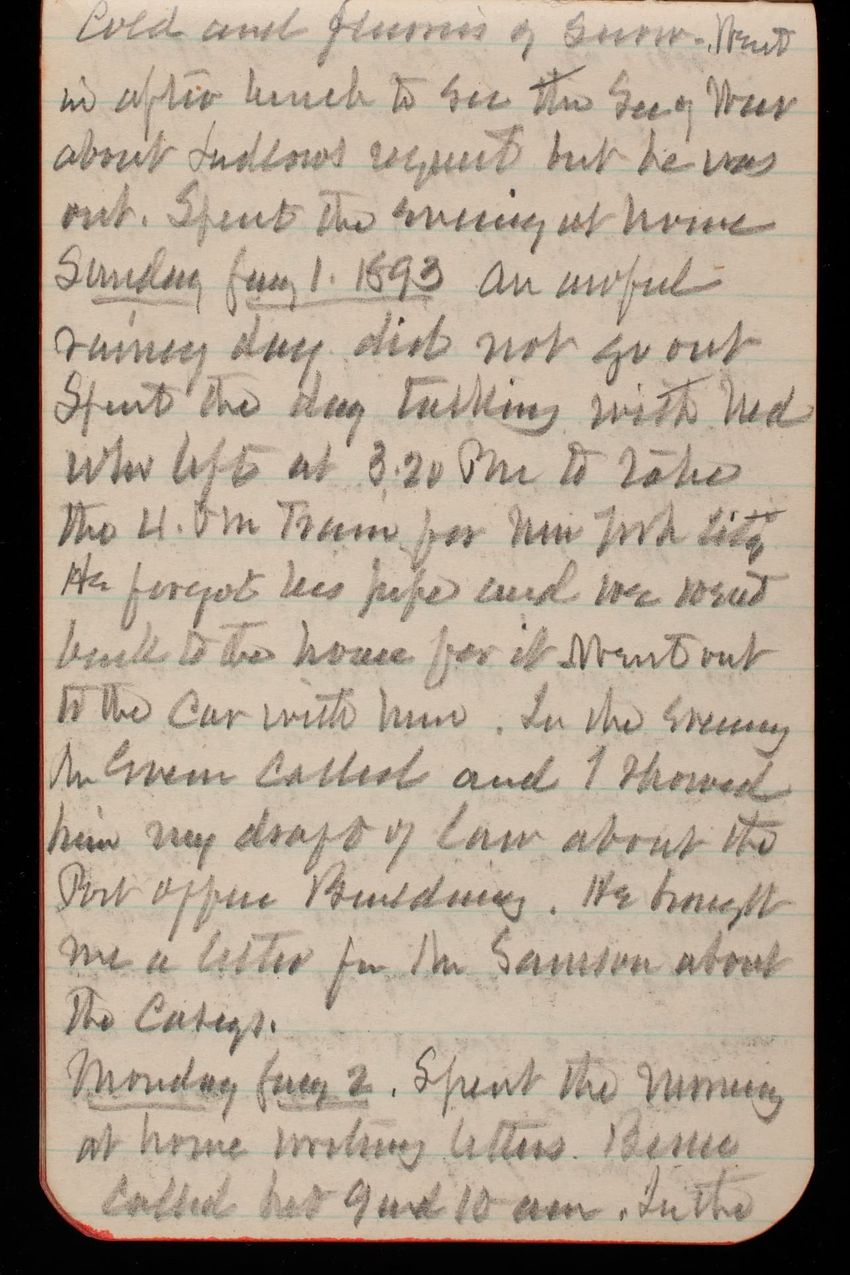 Cold and flurries of snow. Went
in after lunch to see the Secy War
about Ludlows request but he was
out. Spent the evening at home
Sunday Jany 1. 1893 An awful
rainey day did not go out
Spent the day talking with Ned
who left at 3.20 PM to take
the 4. PM Train for New York City
He forgot his pipe and we went
back to the house for it Went out
to the Car with him. In the evening
Mr Green Called and I showed
him my draft of law about the
Post office Building. He brought
me a letter fr Mr Samson about
the
Monday Jany 2. Spent the morning
at home writing letters. Bessie
Called bet 9 and 10 am. In the